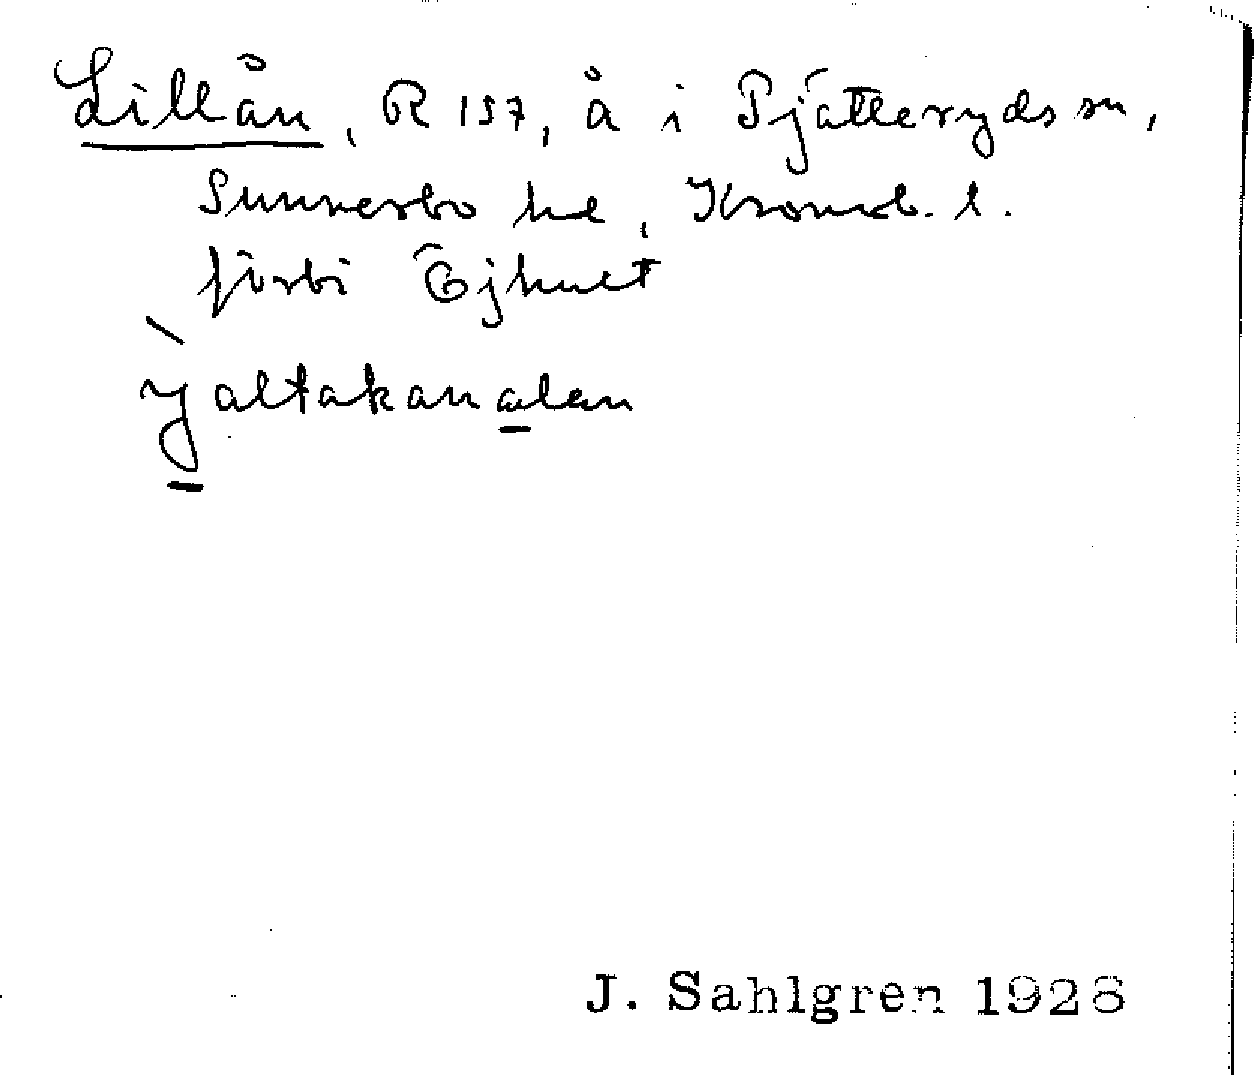 Lillån, R 157, å i Pjätteryds sn,
Sunnerbo hd, Kronob. l.
förbi Ejhult
Jaltakanalen
J. Sahlgren 1928